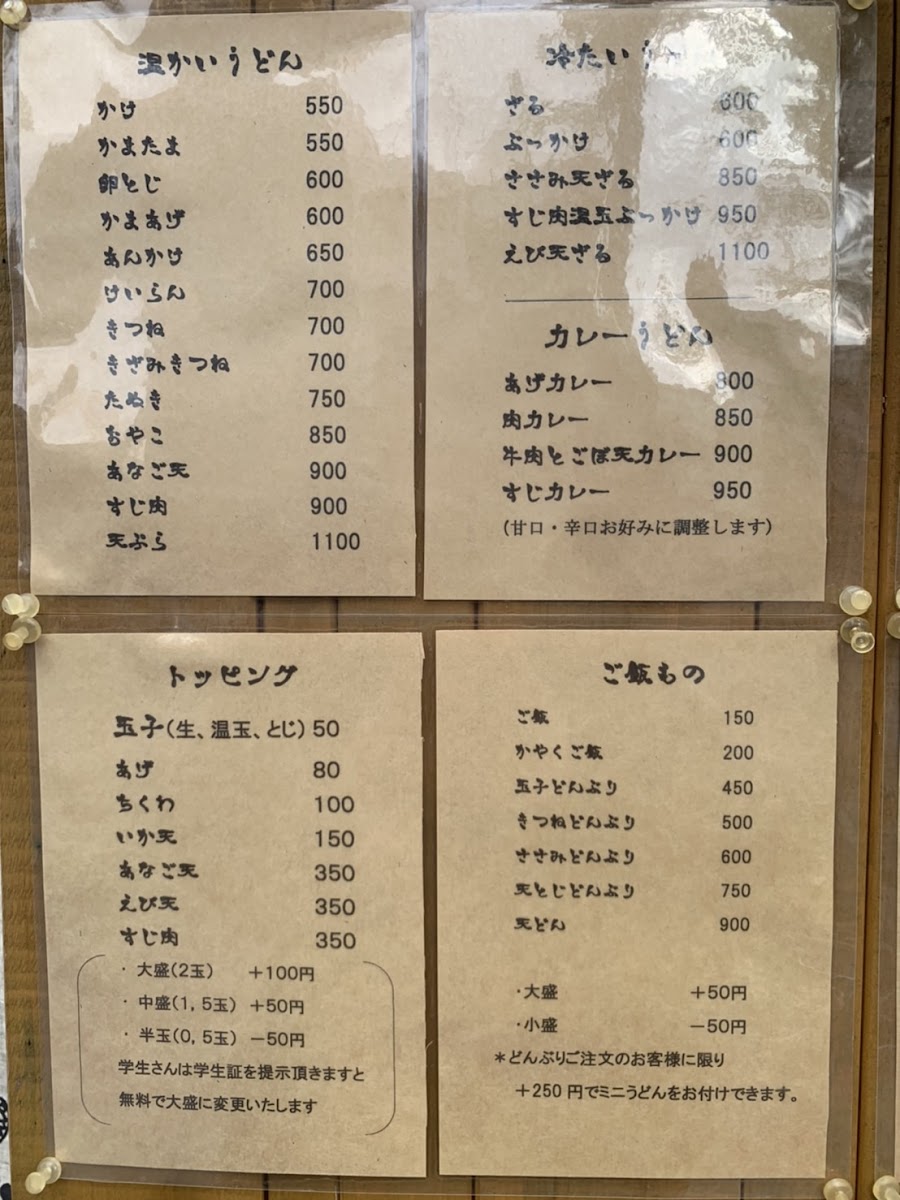 温かいうどん
かけ 550
かまたま 550
卵とじ 600
かまあげ 600
あんかけ 650
けいらん 700
きつね 700
きざみきつね 700
たぬき 750
おやこ 850
あなご天 900
すじ肉 900
天ぷら 1100
冷たいう
ざる 600
ぶっかけ 600
ささみ天ざる 850
すじ肉温玉ぶっかけ 950
えび天ざる 1100
カレーうどん
あげカレー 800
肉カレー 850
牛肉とごぼ天カレー 900
すじカレー 950
(甘口・辛口お好みに調整します)
トッピング
玉子(生、温玉、とじ) 50
あげ 80
ちくわ 100
いか天 150
あなご天 350
えび天 350
すじ肉 350
・大盛(2玉) +100円
・中盛(1,5玉) +50円
・半玉(0,5玉) -50円
学生さんは学生証を提示頂きますと
無料で大盛に変更いたします
ご飯もの
ご飯 150
かやくご飯 200
玉子どんぶり 450
きつねどんぶり 500
ささみどんぶり 600
天とじどんぶり 750
天どん 900
・大盛 +50円
・小盛 -50円
*どんぶりご注文のお客様に限り
+250円でミニうどんをお付けできます。